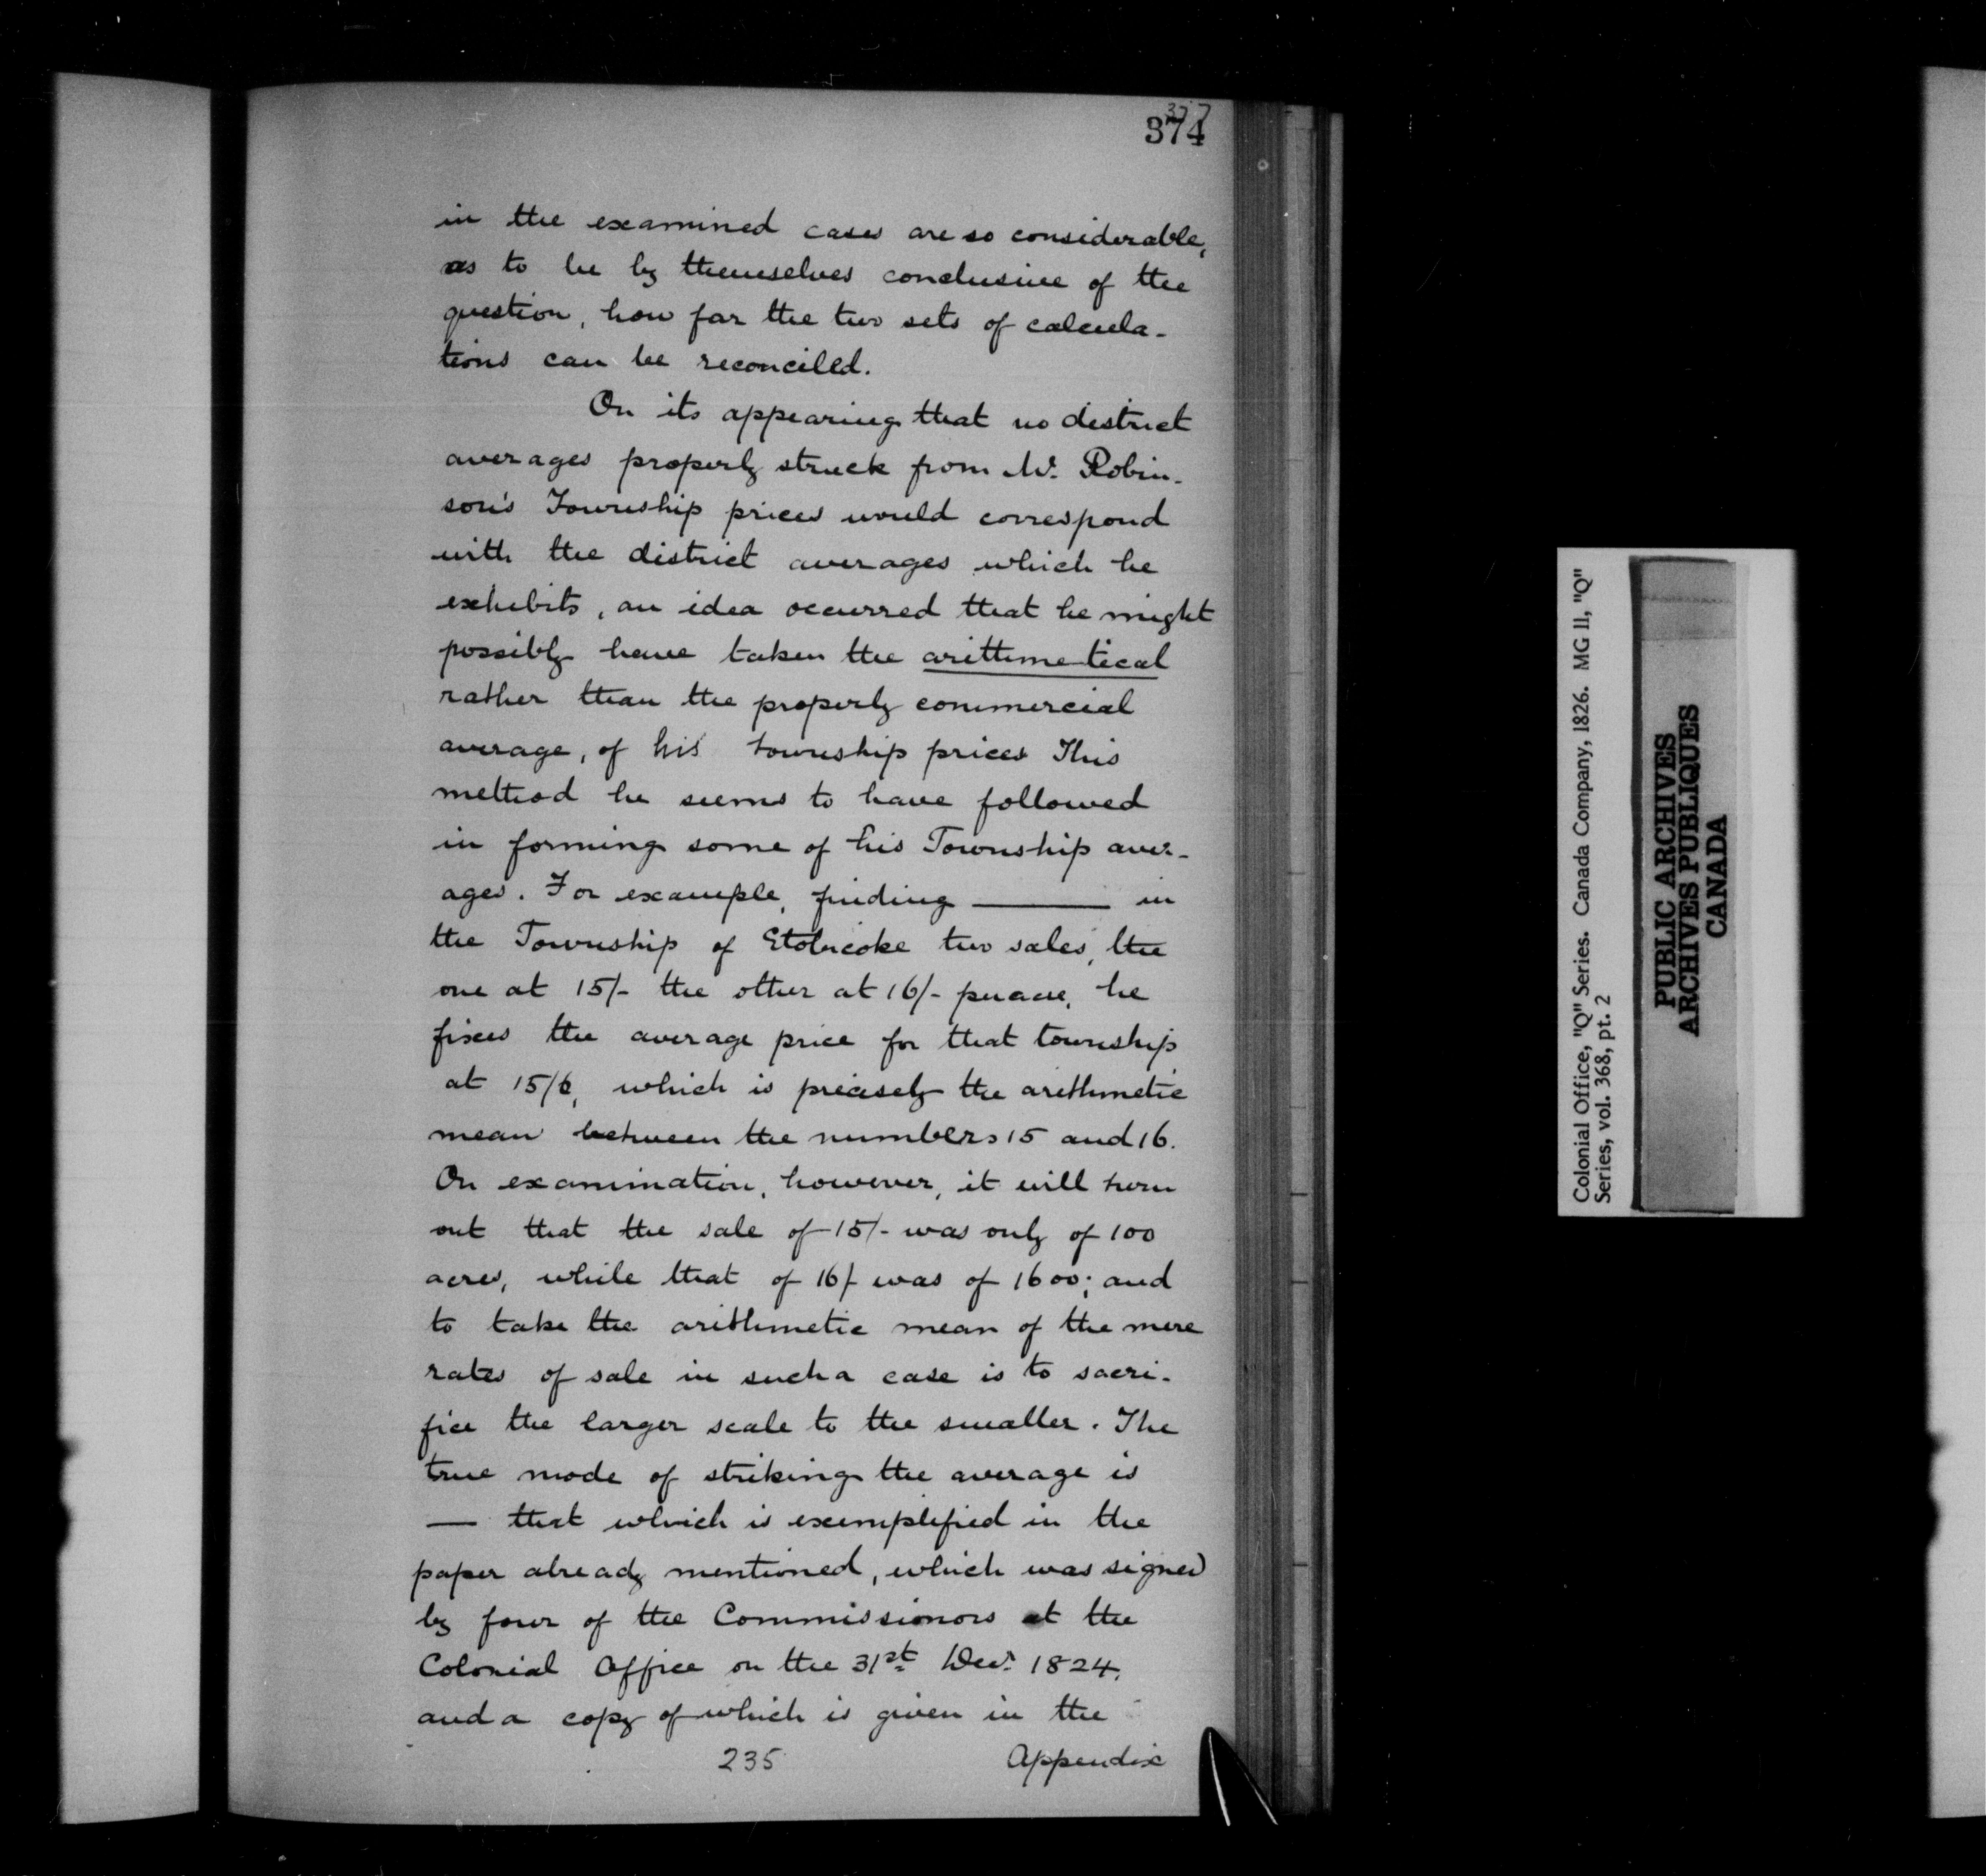 377
374
in the examined cases are so considerable,
as to be by themselves conclusive of the
question, how far the two sets of calcula-
tions can be reconciled.
On its appearing that no district
averages properly struck from Mr. Robin-
son's Township prices would correspond
with the district averages which he
exhibits, an idea occurred that he might
possibly have taken the arithmetical
rather than the properly commercial
average, of his township prices This
method he seems to have followed
in forming some of his Township aver-
ages. For example, finding ——— in
the Township of Etobicoke two sales, the
one at 15/- the other at 16/- per acre, he
fixes the average price for that township
at 15/6, which is precisely the arithmetic
mean between the numbers 15 and 16.
On examination, however, it will turn
out that the sale of 15/- was only of 100
acres, while that of 16/- was of 1600; and
to take the arithmetic mean of the mere
rates of sale in such a case is to sacri-
fice the larger scale to the smaller. The
true mode of striking the average is
— that which is exemplified in the
paper already mentioned, which was signed
by four of the Commissionors at the
Colonial Office on the 31st Decr. 1824,
and a copy of which is given in the
235 Appendix
Colonial Office, "Q" Series. Canada Company, 1826. MG 11, "Q"
Series, vol. 368, pt. 2
PUBLIC ARCHIVES
ARCHIVES PUBLIQUES
CANADA